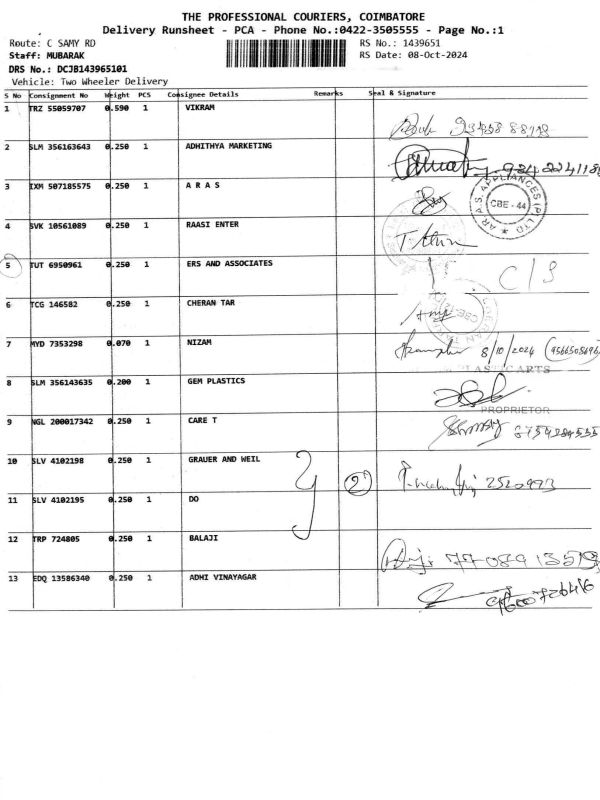 THE PROFESSIONAL COURIERS, COIMBATORE
Delivery Runsheet - PCA - Phone No.:0422-3505555 - Page No.:1
Route: C SAMY RD RS No.: 1439651
Staff: MUBARAK RS Date: 08-Oct-2024
DRS No.: DCJB143965101
Vehicle: Two Wheeler Delivery
S No Consignment No Weight PCS Consignee Details Remarks Seal & Signature
1 TRZ 55059707 0.590 1 VIKRAM
2 SLM 356163643 0.250 1 ADHITHYA MARKETING
3 IXM 507185575 0.250 1 A R A S
A.R.A.S. APPLIANCES (P) LTD ★ CBE - 44
4 SVK 10561089 0.250 1 RAASI ENTER
5 TUT 6950961 0.250 1 ERS AND ASSOCIATES C/S
6 TCG 146582 0.250 1 CHERAN TAR
7 MYD 7353298 0.070 1 NIZAM 8/10/2024
8 SLM 356143635 0.200 1 GEM PLASTICS
PROPRIETOR
9 NGL 200017342 0.250 1 CARE T
10 SLV 4102198 0.250 1 GRAUER AND WEIL 2 2520973
11 SLV 4102195 0.250 1 DO
12 TRP 724805 0.250 1 BALAJI
13 EDQ 13586340 0.250 1 ADHI VINAYAGAR